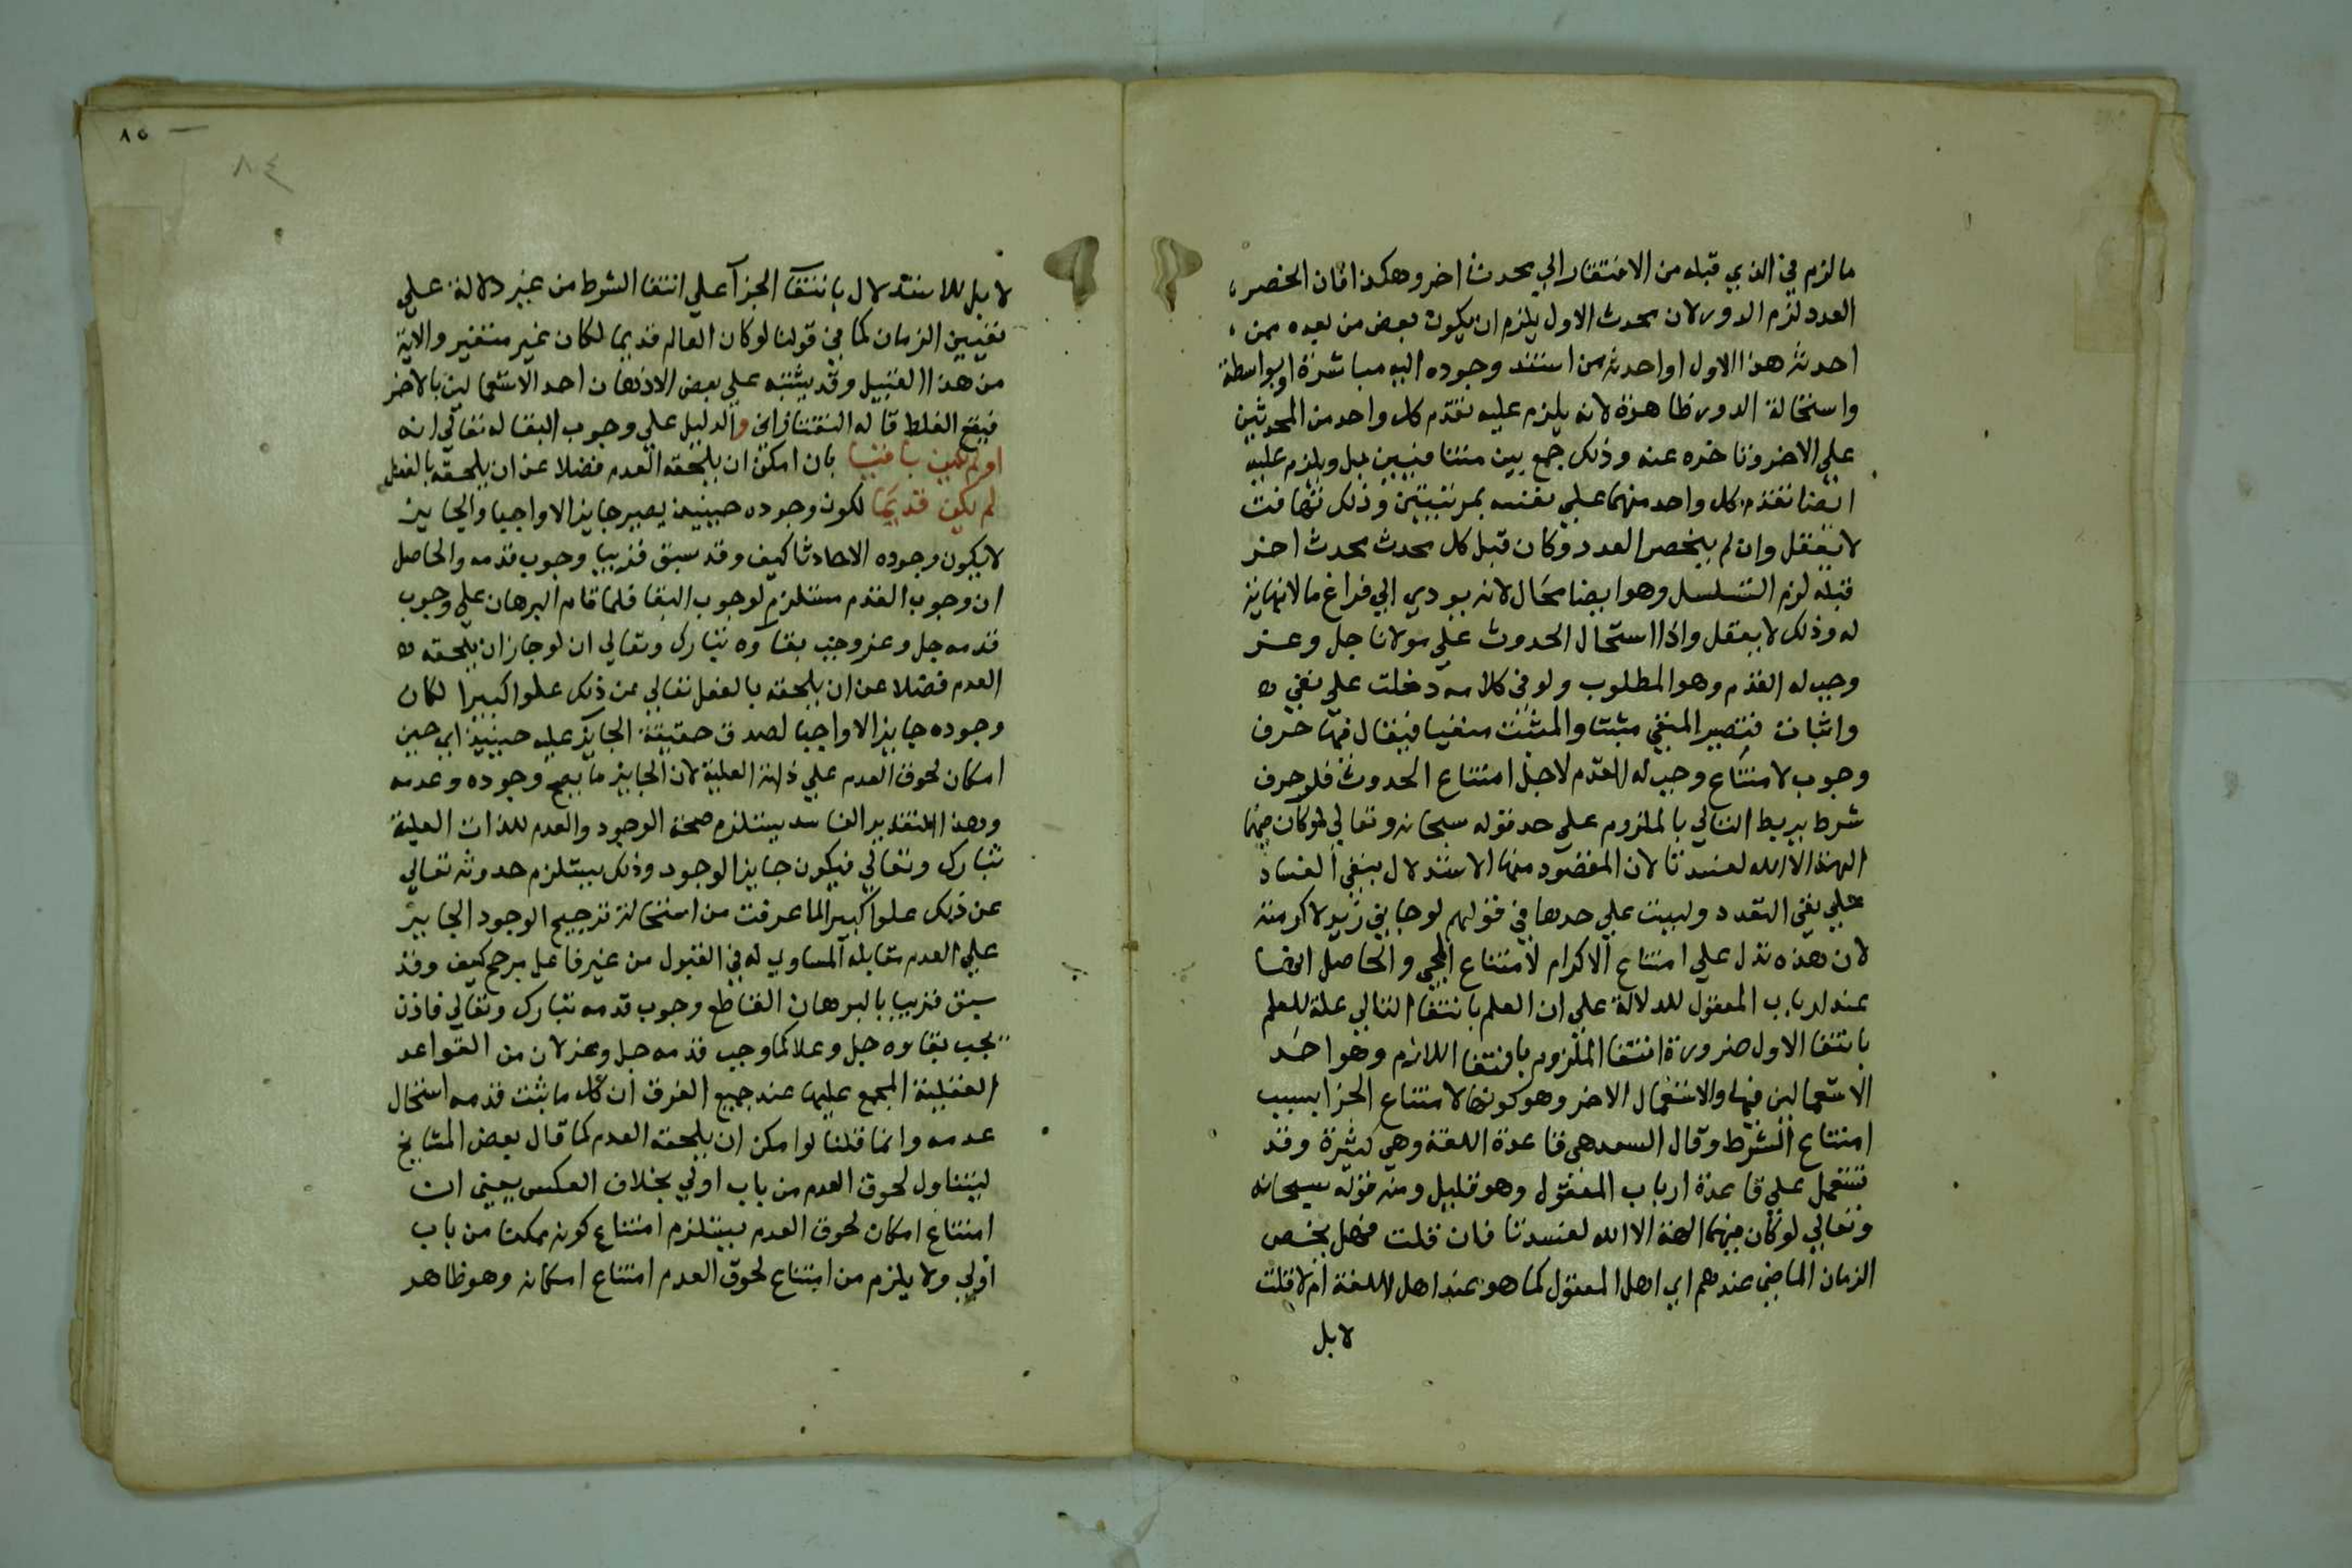 ما لزم في الذي قبله من الافتقار الي محدث اخر وهكذا فان انحصر
العدد لزم الدور لان محدث الاول يلزم ان يكون بعض من بعده ممن
احدثه هذا الاول او احدثه من استند وجوده اليه مباشرة او بواسطة
واستحالة الدور ظاهرة لانه يلزم عليه تقدم كل واحد من المحدثين
علي الاخر وتاخره عنه وذلك جمع بين متنافيين بل ويلزم عليه
ايضا تقدم كل واحد منهما علي نفسه بمرتبتين وذلك تهافت
لا يعقل وان لم ينحصر العدد وكان قبل كل محدث محدث اخر
قبله لزم التسلسل وهو ايضا محال لانه يودي الي فراغ ما لا نهاية
له وذلك لا يعقل واذا استحال الحدوث علي مولانا جل وعز
وجب له القدم وهو المطلوب ولو في كلامه دخلت علي نفي
واثبات فتصير المنفي مثبتا والمثبت منفيا فيقال فيها حرف
وجوب لامتناع وجب له القدم لاجل امتناع الحدوث فلو حرف
شرط يربط التالي بالملزوم علي حد قوله سبحانه وتعالي لو كان فيهما
الهة الا الله لفسدتا لان المقصود منها الاستدلال بنفي الفساد
علي نفي التعدد وليست علي حدها في قولهم لو جاني زيد لاكرمته
لان هذه تدل علي امتناع الاكرام لامتناع المجي والحاصل انها
عند ارباب المعقول للدلالة علي ان العلم بانتفا التالي علة للعلم
بانتفا الاول ضرورة انتفا الملزوم بانتفا اللازم وهو احد
الاستعمالين فيها والاستعمال الاخر وهو كونها لامتناع الجزا بسبب
امتناع الشرط وقال السعد هي قاعدة اللغة وهي كثيرة وقد
تستعمل علي قاعدة ارباب المعقول وهو قليل ومنه قوله سبحانه
وتعالي لو كان فيهما الهة الا الله لفسدتا فان قلت فهل يختص
الزمان الماضي عندهم اي اهل المعقول كما هو عند اهل اللغة ام لا قلت
لا بل
٨٥
٨٤
لا بل للاستدلال بانتفا الجزآ علي انتفا الشرط من غير دلالة علي
تعيين الزمان كما في قولنا لو كان العالم قديما لكان غير متغير والاية
من هذا القبيل وقد يشتبه علي بعض الاذهان احد الاستعمالين بالاخر
فيقع الغلط قاله التفتازاني والدليل علي وجوب البقا له تعالي انه
لو لم يكن باقيا بان امكن ان يلحقه العدم فضلا عن ان يلحقه بالفعل
لم يكن قديما لكون وجوده حينيذ يصير جايزا لا واجبا والجايز
لا يكون وجوده الا حادثا كيف وقد سبق قريبا وجوب قدمه والحاصل
ان وجوب القدم مستلزم لوجوب البقا فلما قام البرهان علي وجوب
قدمه جل وعز وجب بقاوه تبارك وتعالي ان لو جاز ان يلحقه
العدم فضلا عن ان يلحقه بالفعل تعالي عن ذلك علوا كبيرا لكان
وجوده جايزا لا واجبا لصدق حقيقة الجايز عليه حينيذ اي حين
امكان لحوق العدم علي ذاته العلية لان الجايز ما يصح وجوده وعدمه
وهذا التقدير الفاسد يستلزم صحة الوجود والعدم للذات العلية
تبارك وتعالي فيكون جايز الوجود وذلك يستلزم حدوثه تعالي
عن ذلك علوا كبيرا لما عرفت من استحالة ترجيح الوجود الجايز
علي العدم مقابله المساوي له في القبول من غير فاعل مرجح كيف وقد
سبق قريبا بالبرهان القاطع وجوب قدمه تبارك وتعالي فاذن
يجب بقاوه جل وعلا كما وجب قدمه جل وعز لان من القواعد
العقلية المجمع عليها عند جميع الفرق ان كل ما ثبت قدمه استحال
عدمه وانما قلنا لو امكن ان يلحقه العدم كما قال بعض المشايخ
ليتناول لحوق العدم من باب اولي بخلاف العكس يعني ان
امتناع امكان لحوق العدم يستلزم امتناع كونه ممكنا من باب
اولي ولا يلزم من امتناع لحوق العدم امتناع امكانه وهو ظاهر